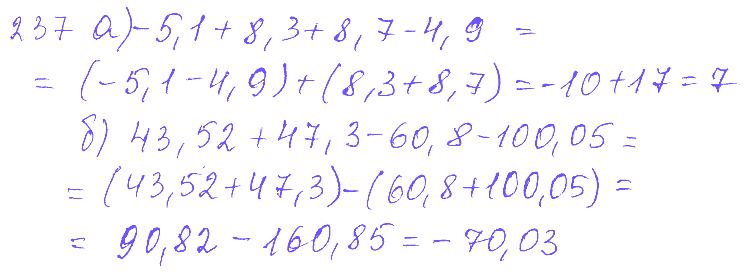 237 а) -5,1 + 8,3 + 8,7 - 4,9 =
= (-5,1 - 4,9) + (8,3 + 8,7) = -10 + 17 = 7
б) 43,52 + 47,3 - 60,8 - 100,05 =
= (43,52 + 47,3) - (60,8 + 100,05) =
= 90,82 - 160,85 = -70,03